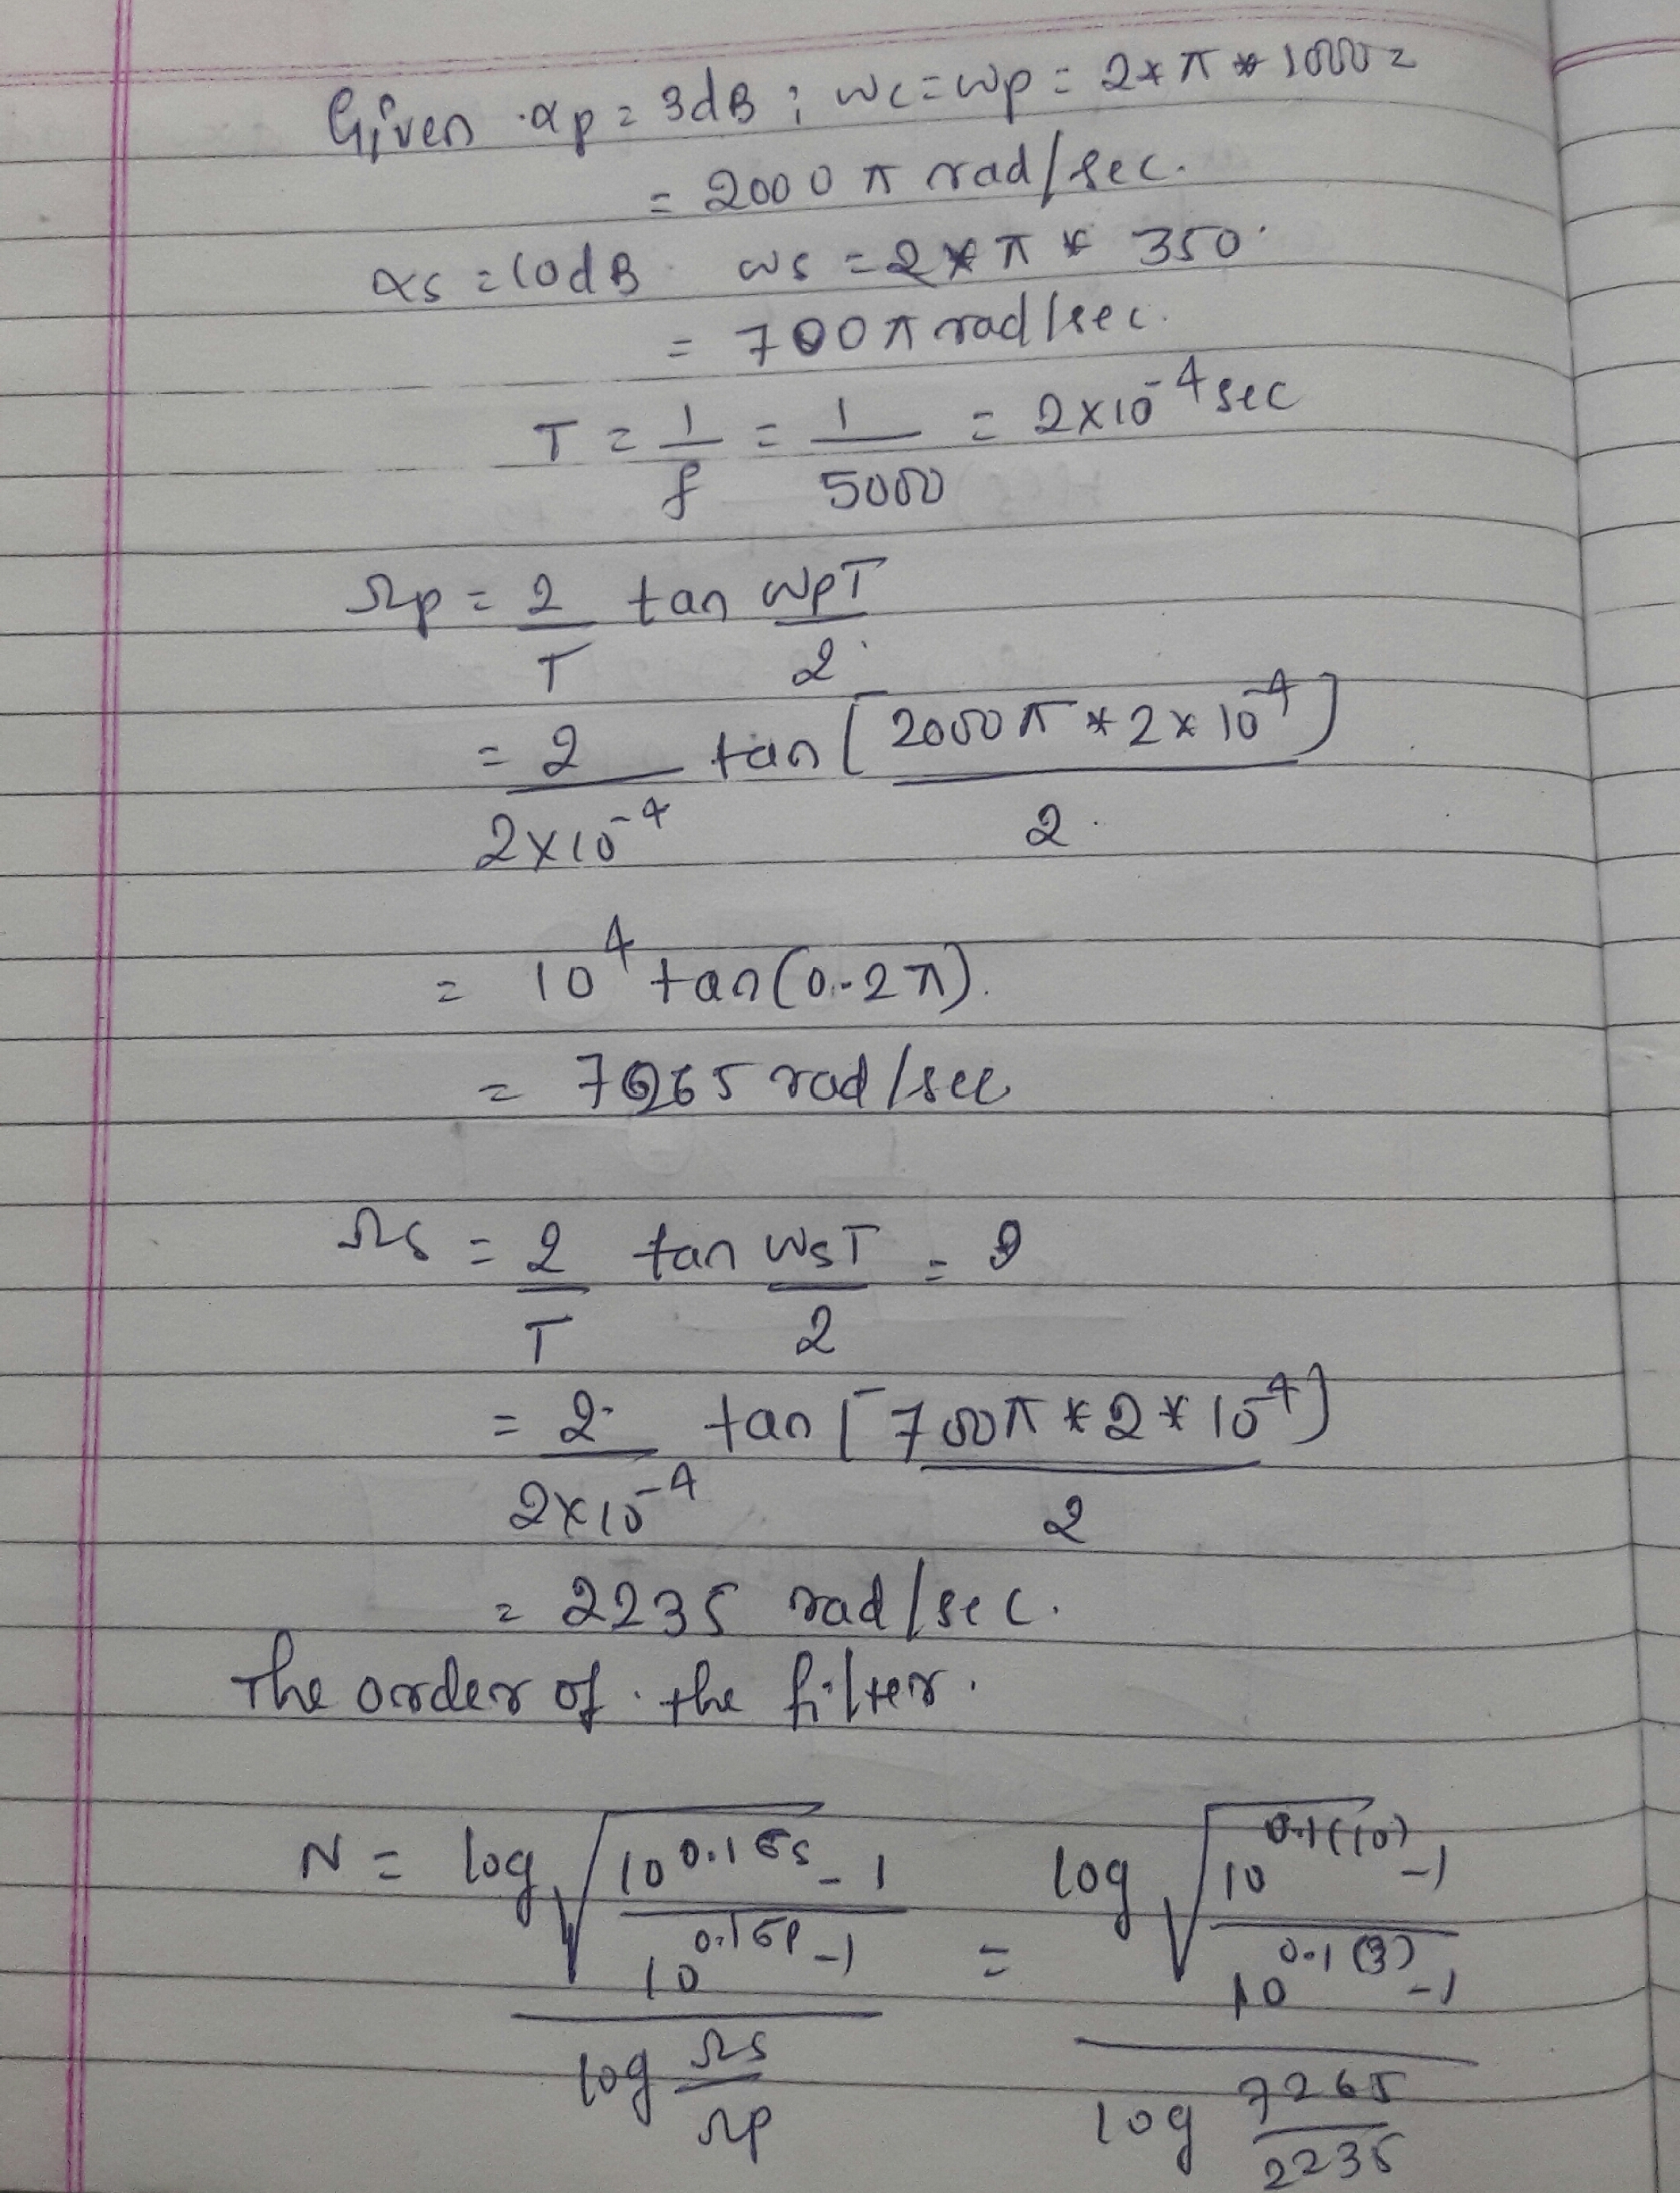 Given αp = 3dB ; wc = wp = 2*π*1000 =
= 2000π rad/sec.
αs = 10dB ws = 2*π*350.
= 700π rad/sec.
T = 1/f = 1/5000 = 2×10^-4 sec
Ωp = 2/T tan wpT/2
= 2/2×10^-4 tan [2000π*2×10^-4/2]
= 10^4 tan(0.2π).
= 7265 rad/sec
Ωs = 2/T tan wsT/2 =
= 2/2×10^-4 tan [700π*2*10^-4/2]
= 2235 rad/sec.
The order of the filter.
N = log √(10^0.1δs -1 / 10^0.1δp -1) / log Ωs/Ωp = log √(10^0.1(10) -1 / 10^0.1(3) -1) / log 7265/2235